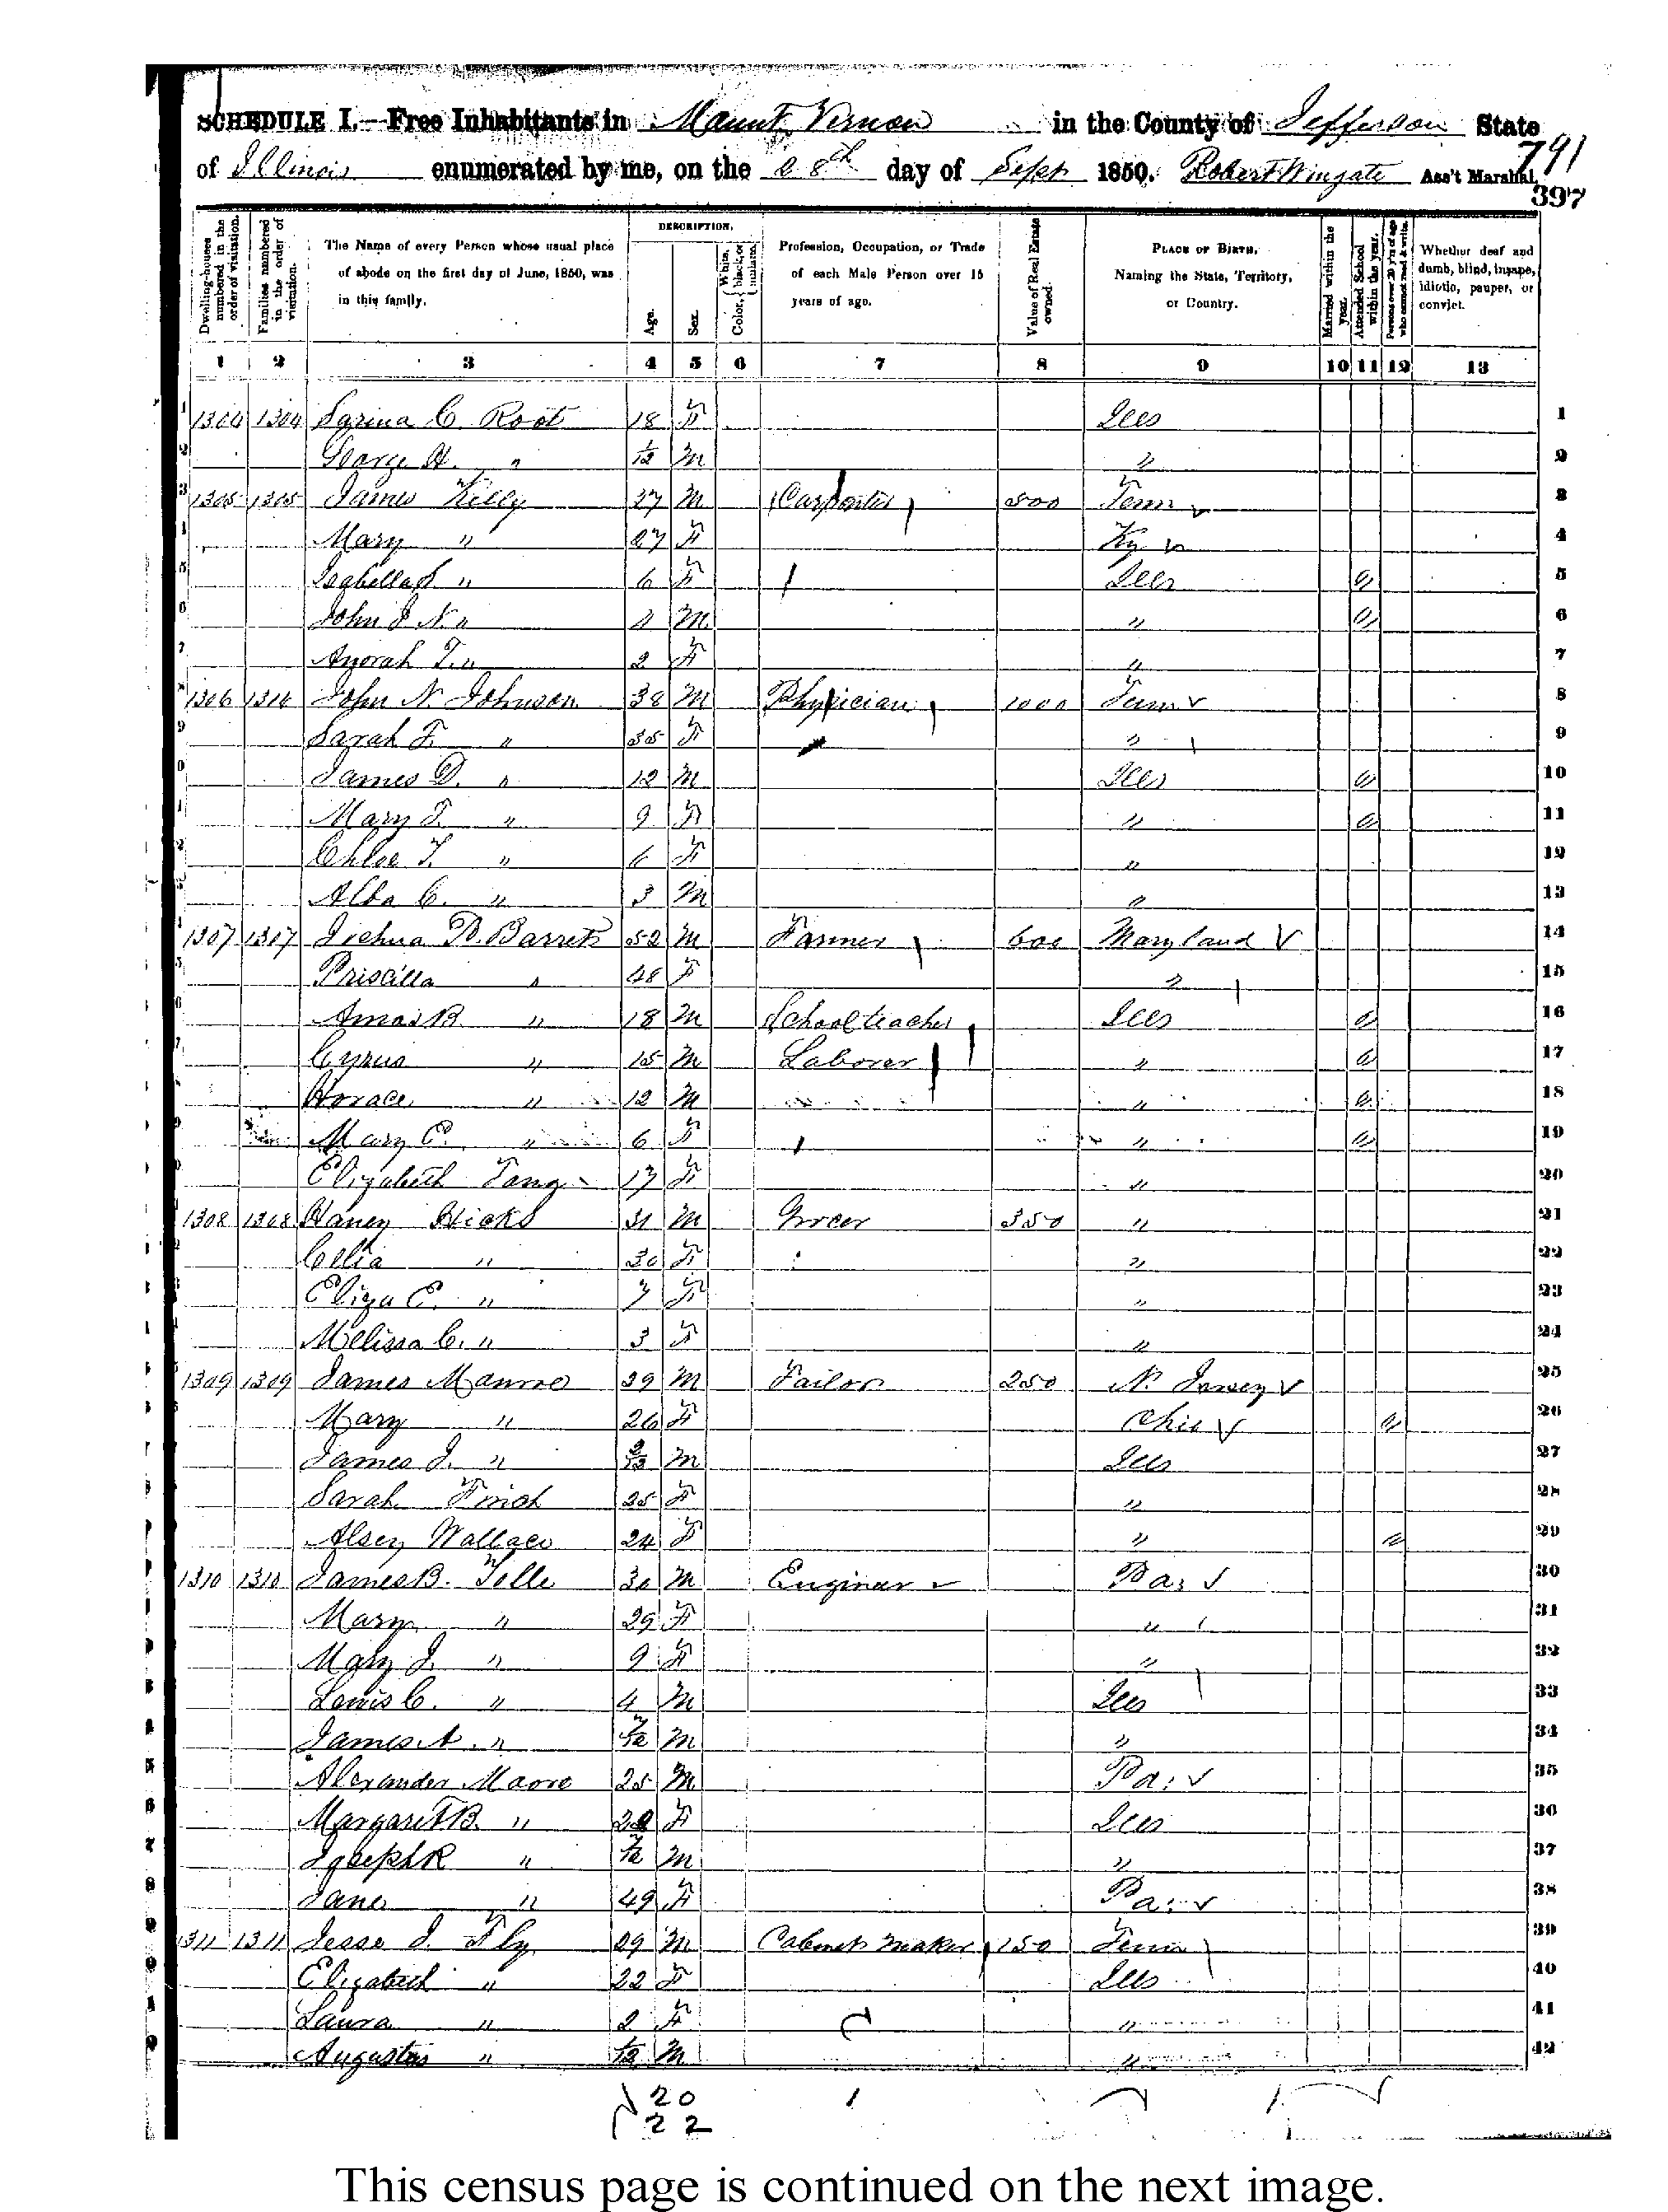 SCHEDULE I.—Free Inhabitants in Mount Vernon in the County of Jefferson State
of Illinois enumerated by me, on the 28th day of Sept 1850. Robert Wingate Ass't Marshal.
791
397
Dwelling-houses numbered in the order of visitation.
Families numbered in the order of visitation.
The Name of every Person whose usual place of abode on the first day of June, 1850, was in this family.
DESCRIPTION.
Age.
Sex.
Color, White, black, or mulatto.
Profession, Occupation, or Trade of each Male Person over 15 years of age.
Value of Real Estate owned.
PLACE OF BIRTH, Naming the State, Territory, or Country.
Married within the year.
Attended School within the year.
Persons over 20 y'rs of age who cannot read & write.
Whether deaf and dumb, blind, insane, idiotic, pauper, or convict.
1 2 3 4 5 6 7 8 9 10 11 12 13
1304 1304 C. Root 18 F Ills 1
George H. " 1/12 M " 2
1305 1305 James Kelly 27 M Carpenter 500 Tenn 3
Mary " 27 F Ky 4
Isabella " 6 F Ills 5
John J N " M " 6
T. " 2 F " 7
1306 John N. Johnson 38 M Physician 1000 Tenn 8
Sarah F. " 35 F " 9
James D. " 12 M Ills 10
Mary J. " 9 F " 11
Chloe T. " 6 F " 12
Alba C. " 3 M " 13
1307 1307 Joshua B. Barrett 52 M Farmer 600 Maryland 14
Priscilla " 48 F " 15
Amos B " 18 M School teacher Ills 16
Cyrus " 15 M Laborer " 17
Horace " 12 M " 18
Mary E. " 6 F " 19
Elizabeth 17 F " 20
1308 1308 Haney Hicks 31 M Grocer 350 " 21
Celia " 30 F " 22
Eliza E. " 7 F " 23
Melissa C. " 3 F " 24
1309 1309 James Manroe 29 M Tailor 250 N. Jersey 25
Mary " 26 F Ohio 26
James J. " M Ills 27
Sarah 25 F " 28
Alsey Wallace 24 F " 29
1310 1310 James B. Tolle 30 M Engineer Pa. 30
Mary " 29 F " 31
Mary J. " 9 F " 32
Lewis C. " 4 M Ills 33
James A. " 7/12 M " 34
Alexander Moore 25 M Pa. 35
Margaret B. " F Ills 36
Joseph R " M " 37
Jane " 49 F Pa. 38
1311 1311 Jesse J. Fly 29 M Cabinet maker 150 Tenn 39
Elizabeth " 22 F Ills 40
Laura " 2 F " 41
Augustus " M " 42
20
22
This census page is continued on the next image.